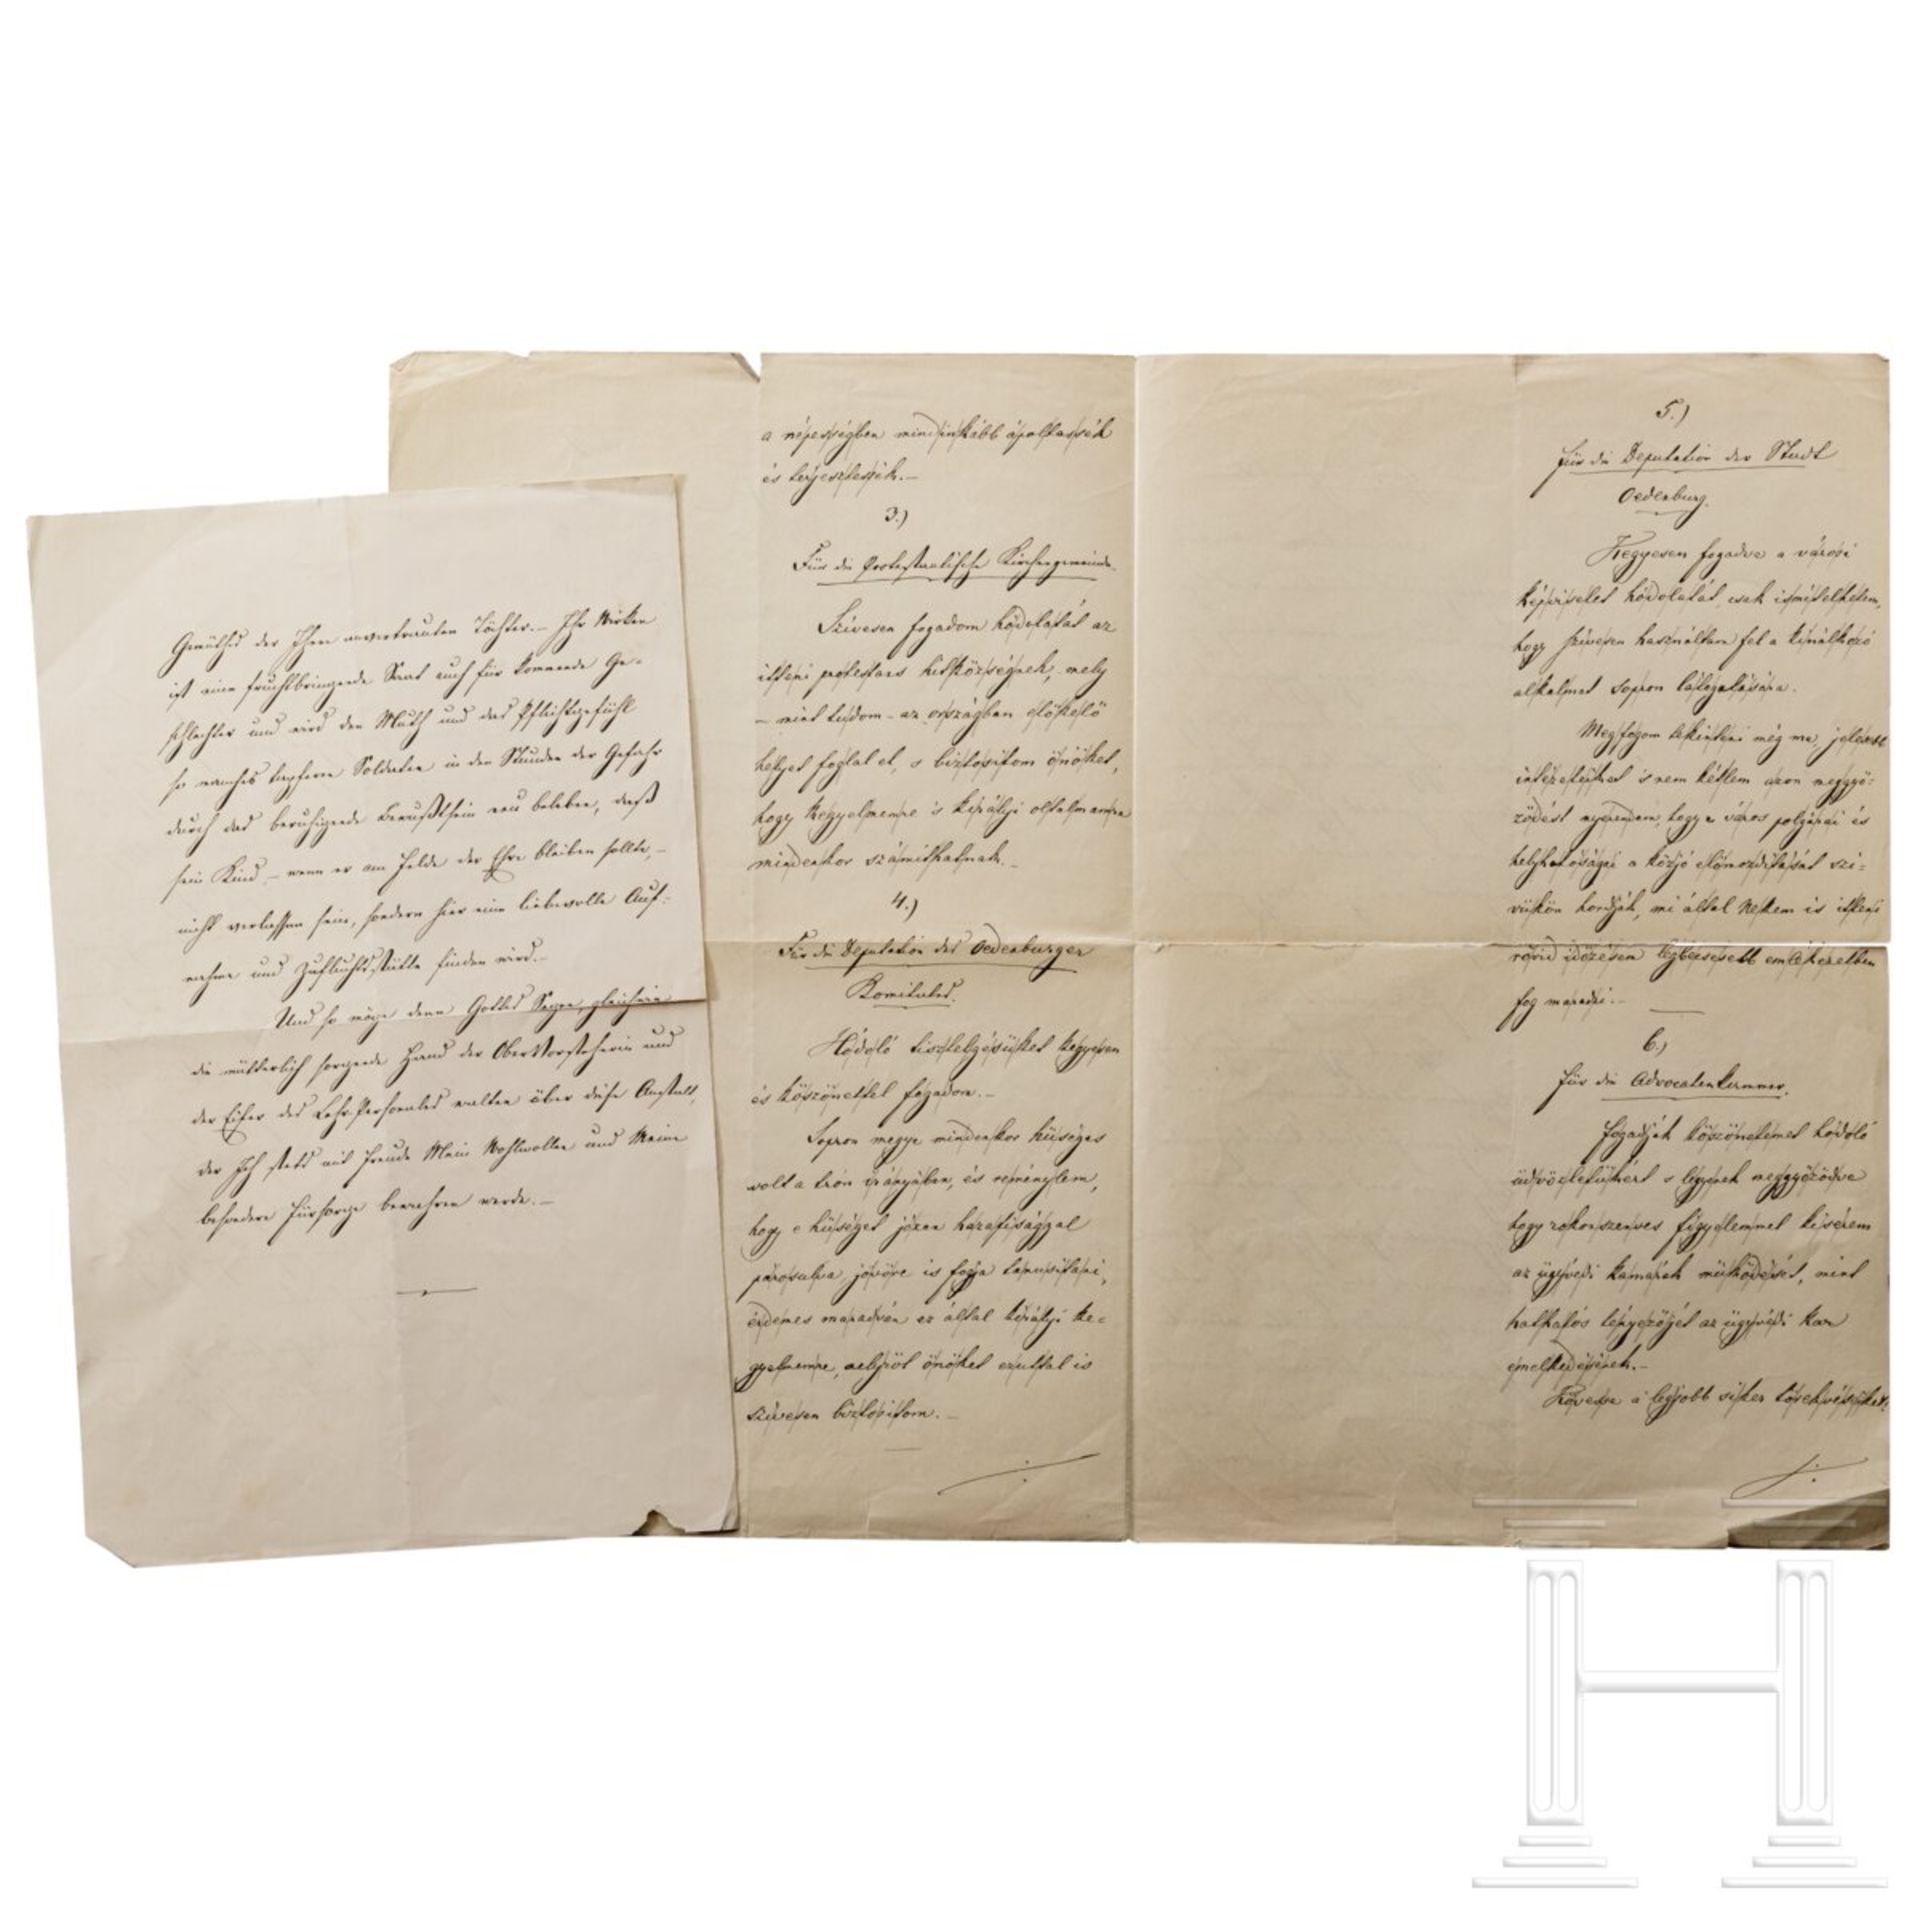 Gemüthes der Ihnen anvertrauten Töchter. – Ihr Wirken
ist eine fruchtbringende Saat auch für kommende Ge-
schlechter und wird den Muth und das Pflichtgefühl
so manches tapferen Soldaten in den Stunden der Gefahr
durch das beruhigende Bewußtsein neu beleben, daß
sein Kind, – wenn er am Felde der Ehre bleiben sollte, –
nicht verlassen sein, sondern hier eine liebevolle Auf-
nahme und Zufluchtsstätte finden wird. –
Und so möge denn Gottes Segen, gleichwie
die mütterlich sorgende Hand der Obervorsteherin und
der Eifer des Lehr-Personales walten über diese Anstalt,
der Ich stets mit Freude Mein Wohlwollen und Meine
besondere Fürsorge bewahren werde. –
a népességben mindinkább ápoltassék
és terjesztessék. –
3.)
Für die Protestantische Kirchengemeinde.
Szivesen fogadom hódolatát az
itteni protestans hitközségnek, mely
– mint tudom – az országban előkelő
helyet foglal el, s biztositom önöket,
hogy kegyelmemre s királyi oltalmamra
mindenkor számithatnak. –
4.)
Für die Deputation des Oedenburger
Komitates.
Hódoló tisztelgésüket kegyesen
és köszönettel fogadom. –
Sopron megye mindenkor hüséges
volt a trón irányában, és reménylem,
hogy e hüséget józan hazafisággal
párosulva jövőre is fogja tanusitani,
érdemes maradván ez által királyi ke-
gyelmemre, melyről önöket ezuttal is
szivesen biztositom. –
5.)
Für die Deputation der Stadt
Oedenburg.
Kegyesen fogadva a városi
képviselet hódolatát, csak ismételhetem,
hogy szivesen használtam fel a kinálkozó
alkalmat Sopron látogatására.
Megfogom tekinteni még ma, jelesebb
intézeteiket s nem kétlem azon meggyő-
ződést nyerendem, hogy a város polgárai és
helyhatóságai a közjó előmozditását szi-
vükön hordják, mi által Nekem is itteni
rövid időzésem legkedvesebb emlékezetben
fog maradni. –
6.)
Für die Advocatenkammer.
Fogadják köszönetemet hódoló
üdvözletükért s legyenek meggyőződve
hogy rokonszenves figyelemmel kisérem
az ügyvédi kamarák müködését, mint
hathatós tényezőjét az ügyvédi kar
emelkedésének. –
Kövesse a legjobb siker törekvésüket.
H